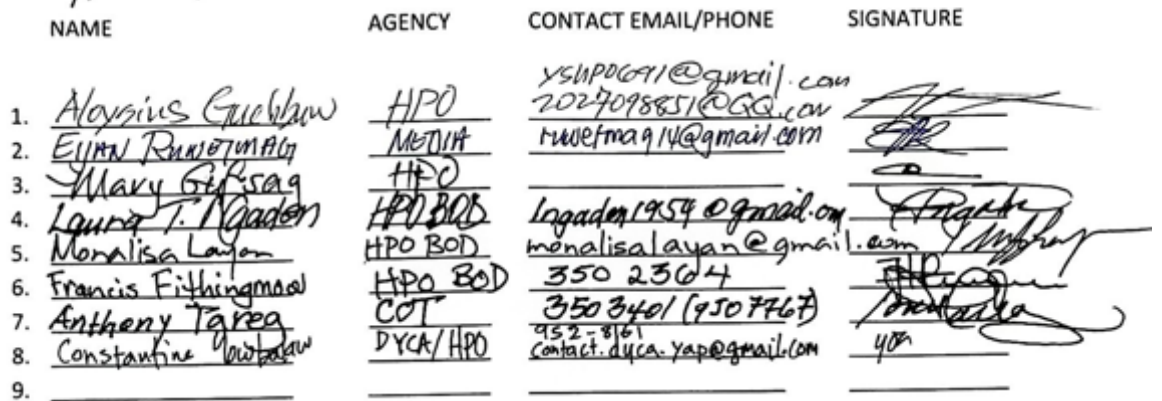 NAME AGENCY CONTACT EMAIL/PHONE SIGNATURE
yshpo691@gmail.com
1. Aloysius HPO 2027098851@QQ.com
2. EIJAN RUWETMAG MEDIA ruwetmag14@gmail.com
3. Mary Gifisag HPO
4. Laura T. Ngaden HPO BOD lngaden1954@gmail.om
5. Monalisa Layan HPO BOD monalisalayan@gmail.com
6. Francis Fithingmow HPO BOD 350 2364
7. Anthony Tareg COT 350 3401 (950 7767)
952-8161
8. Constantine DYCA/HPO contact.dyca.yap@gmail.com
9.